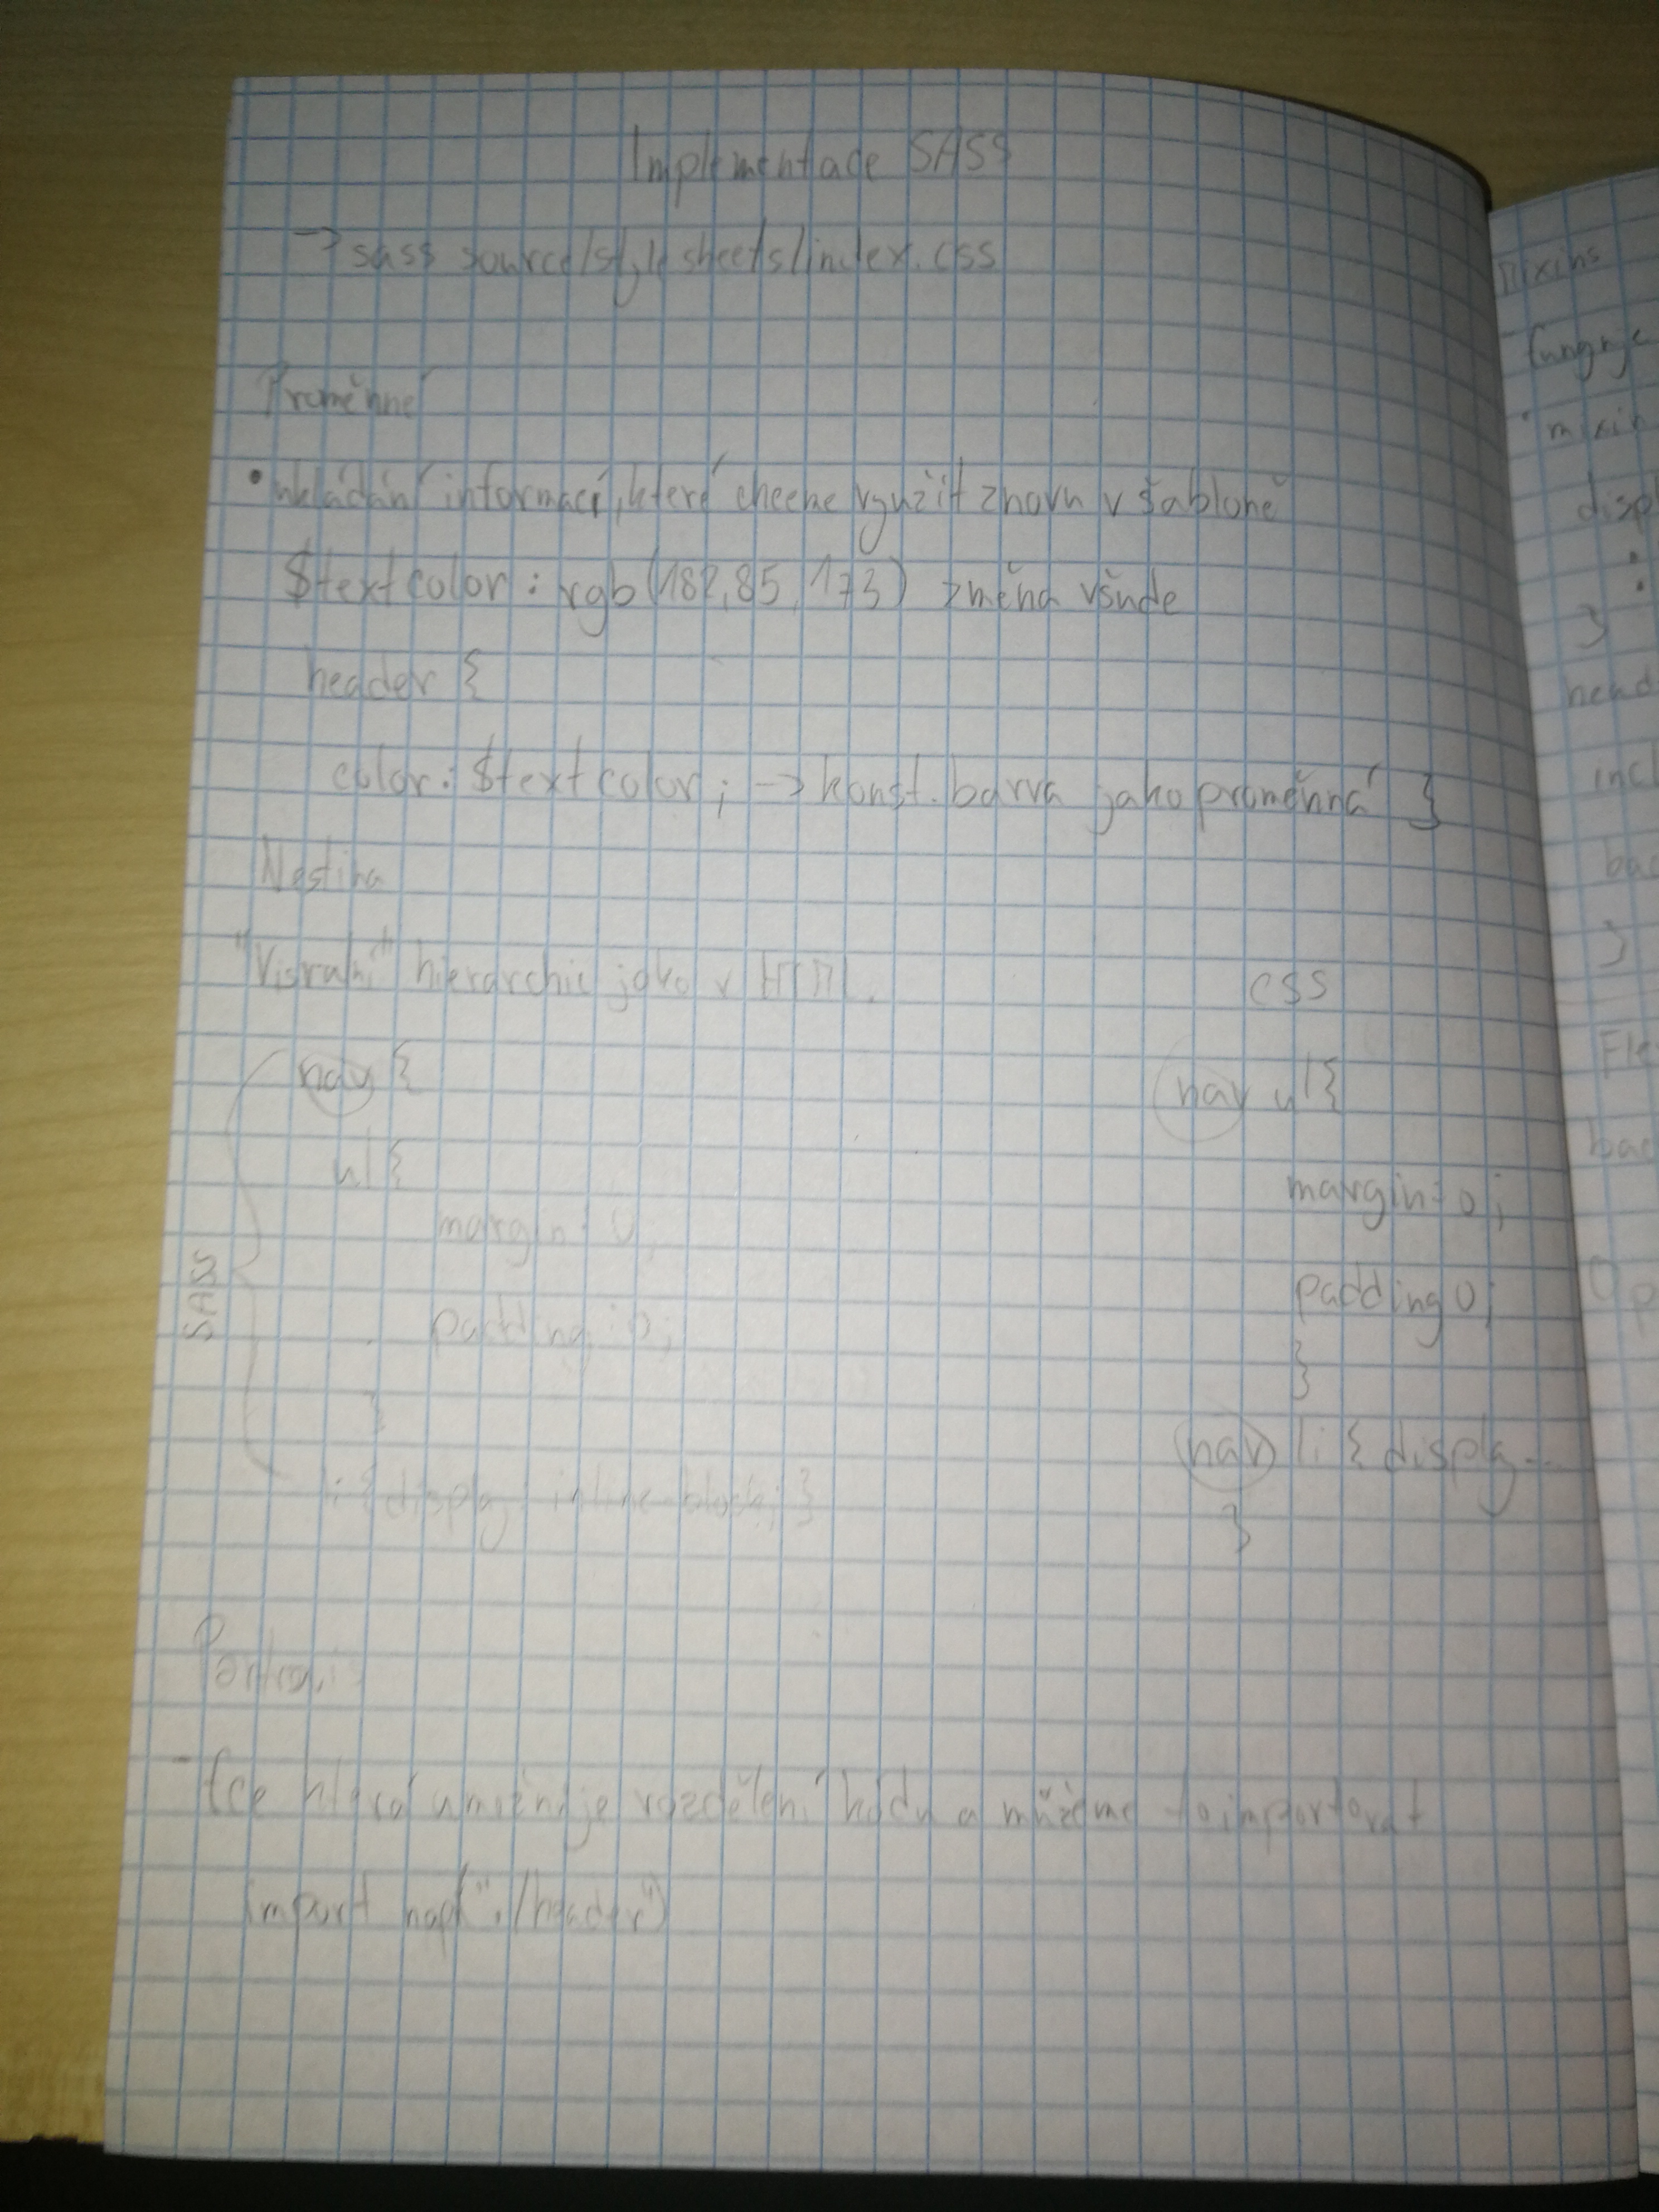 Implementace SASS
→ sass source/stylesheets/index.css
Proměnné
• ukládání informací, které chceme využít znovu v šabloně
$textcolor: rgb(182,85,173) změna všude
header {
color: $textcolor; → konst. barva jako proměnná }
Nesting
"Visualní" hierarchie jako v HTML.
CSS
nav {
nav ul {
ul {
margin: 0;
margin: 0;
SASS
padding: 0;
padding 0;
}
}
nav li { display...
li { display: inline-block; }
}
- fce která umožnuje rozdělení kódu a můžeme to importovat
import např "./header")
Mixins
funguje
mixin
disp
}
head
incl
bac
}
bac